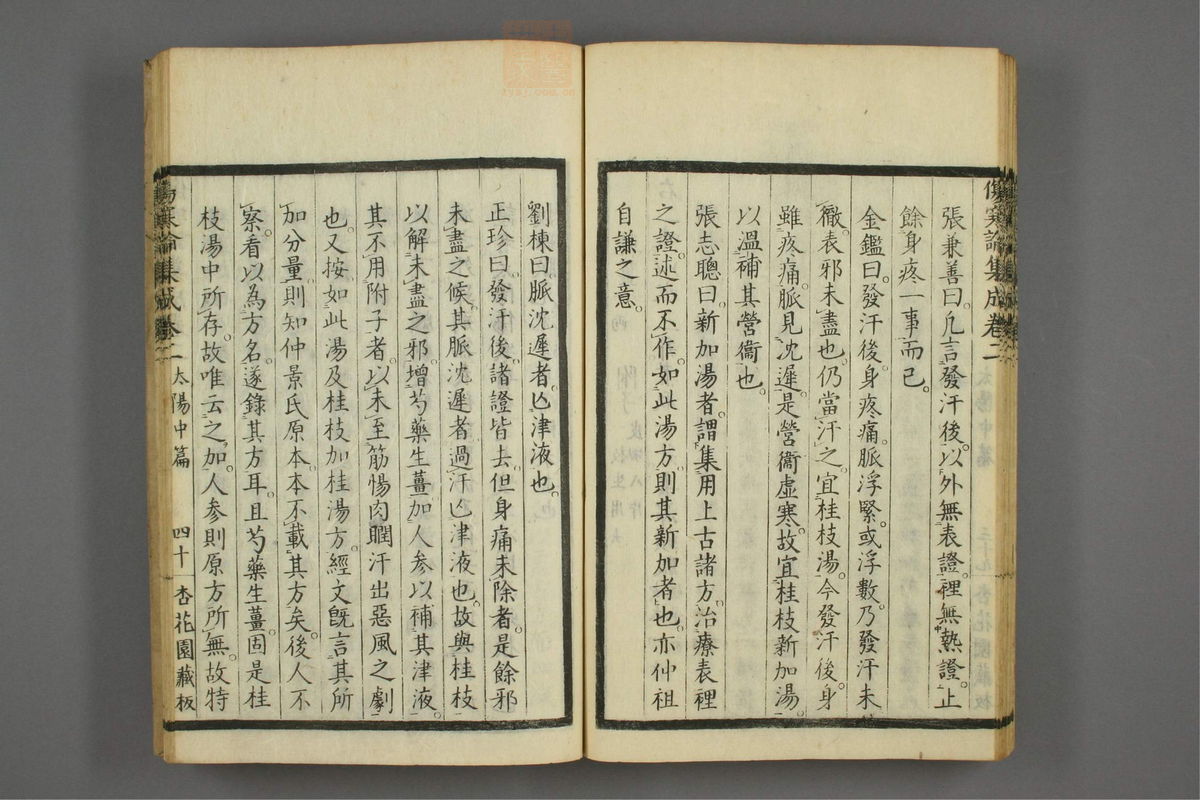 傷寒論集成卷二
張兼善曰凡言發汗後以外無表證裡無熱證止
餘身疼一事而已
金鑑曰發汗後身疼痛脈浮緊或浮數乃發汗未
徹表邪未盡也仍當汗之宜桂枝湯今發汗後身
雖疼痛脈見沈遲是營衞虛寒故宜桂枝新加湯
以溫補其營衞也
張志聰曰新加湯者謂集用上古諸方治療表裡
之證述而不作如此湯方則其新加者也亦仲祖
自謙之意
劉棟曰脈沈遲者亾津液也
正珍曰發汗後諸證皆去但身痛未除者是餘邪
未盡之候其脈沈遲者過汗亾津液也故與桂枝
以解未盡之邪增芍藥生薑加人參以補其津液
其不用附子者以未至筋惕肉瞤汗出惡風之劇
也又按如此湯及桂枝加桂湯方經文旣言其所
加分量則知仲景氏原本本不載其方矣後人不
察看以為方名遂錄其方耳且芍藥生薑固是桂
枝湯中所存故唯云之加人參則原方所無故特
傷寒論集成卷二 太陽中篇 四十一 杏花園藏板